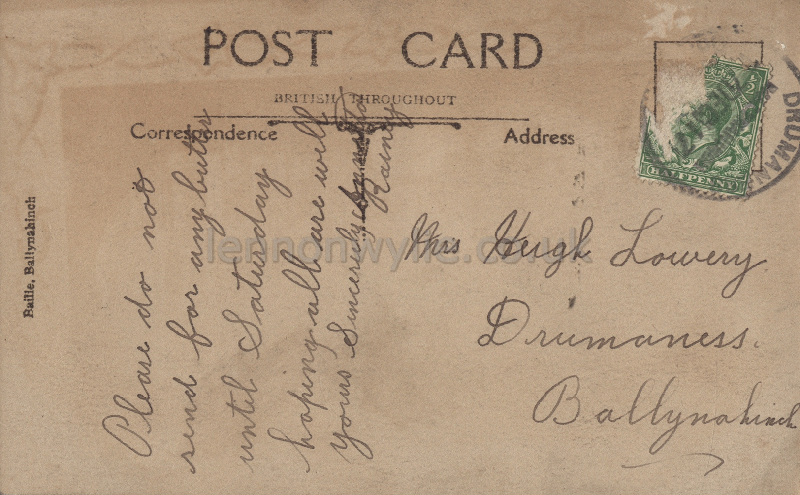 POST CARD
BRITISH THROUGHOUT
Correspondence
Address
Please do not
send for any butter
until Saturday
hoping all are well
yours Sincerely
Rainey
Mrs Hugh Lowery
Drumaness.
Ballynahinch
Baillie, Ballynahinch
HALFPENNY
½
DRUMAN
lennonwylie.co.uk